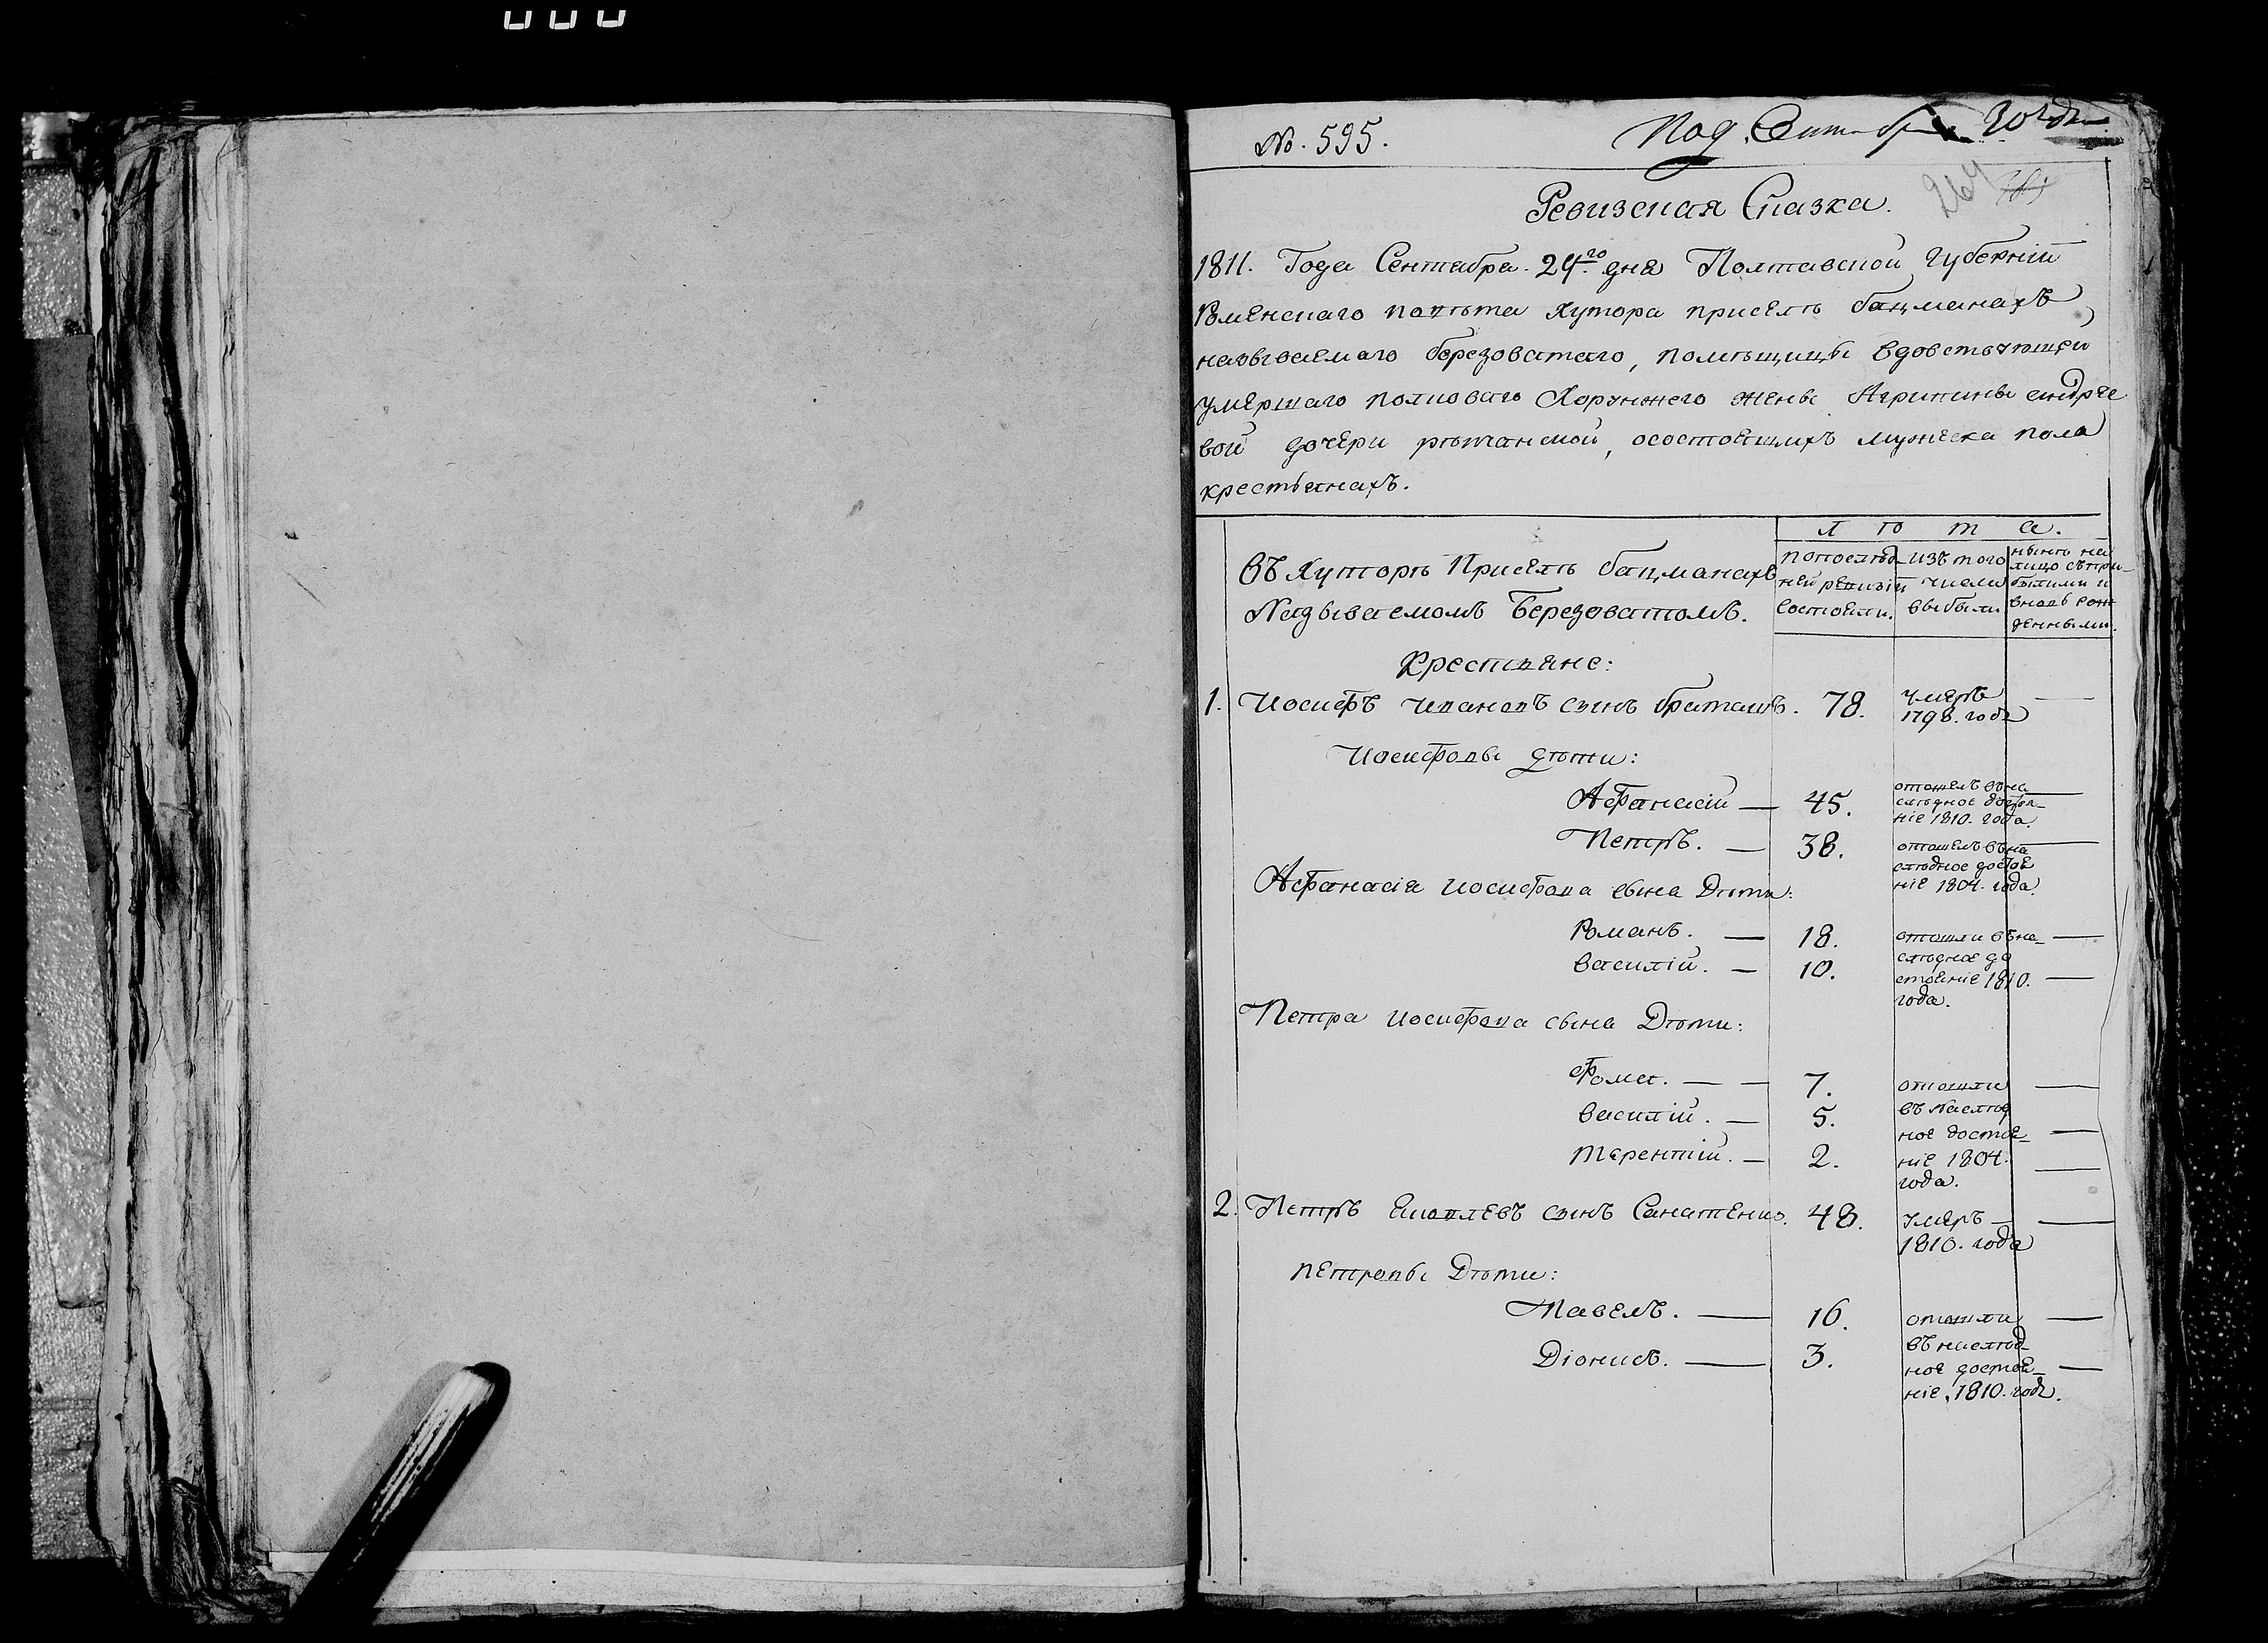 №. 595.
Под. Сентября 30го дня
264
Ревизская Сказка.
1811. Года Сентабра 29.го дня Полтавской Губерніи
Роменскаго повѣта Хутора приселѣ бацманахъ
называемаго березоватаго, помѣщицы вдовствующеи
умершаго полковаго Хорунжего жены Агрипины андрее
вой дочери, осостоящихъ мужеска пола
крестьянахъ.
лѣта.
въ Хуторѣ Приселѣ бацманахъ
Називаемомъ Березоватомъ.
попослѣд-
ней ревизіи
состояли.
изътого
числа
выбыли
нынѣ на
лицо съпри-
былими и
вновь рож
денными.
Крестьяне:
1. Иосифъ ивановъ сынъ браташъ. 78. умеръ
1798. года —
Иосифовы дѣти:
Афанасій — 45. отошелъ въна
слѣдное достоя-
ніе 1810. года. —
Петръ. — 38. отошелъ въна
слѣдное достоя
ніе 1804. года. —
Афанасія иосифова сына Дѣти:
Романъ. — 18. отошли въна- —
василій. — 10. слѣдное до
стояніе 1810. —
года.
Петра иосифова сына Дѣти:
Фома. — — 7. отошли —
василій. — 5. въ Наслѣд
ное достоя- —
терентій. — 2. ніе 1804. —
года.
2. Петръ сынъ Санатенко. 48. умеръ — —
1810. года
петровы Дѣти:
Павелъ. — 16. отошли —
въ наслѣд-
Діонисъ. — 3. ное достоя- —
ніе, 1810. года.